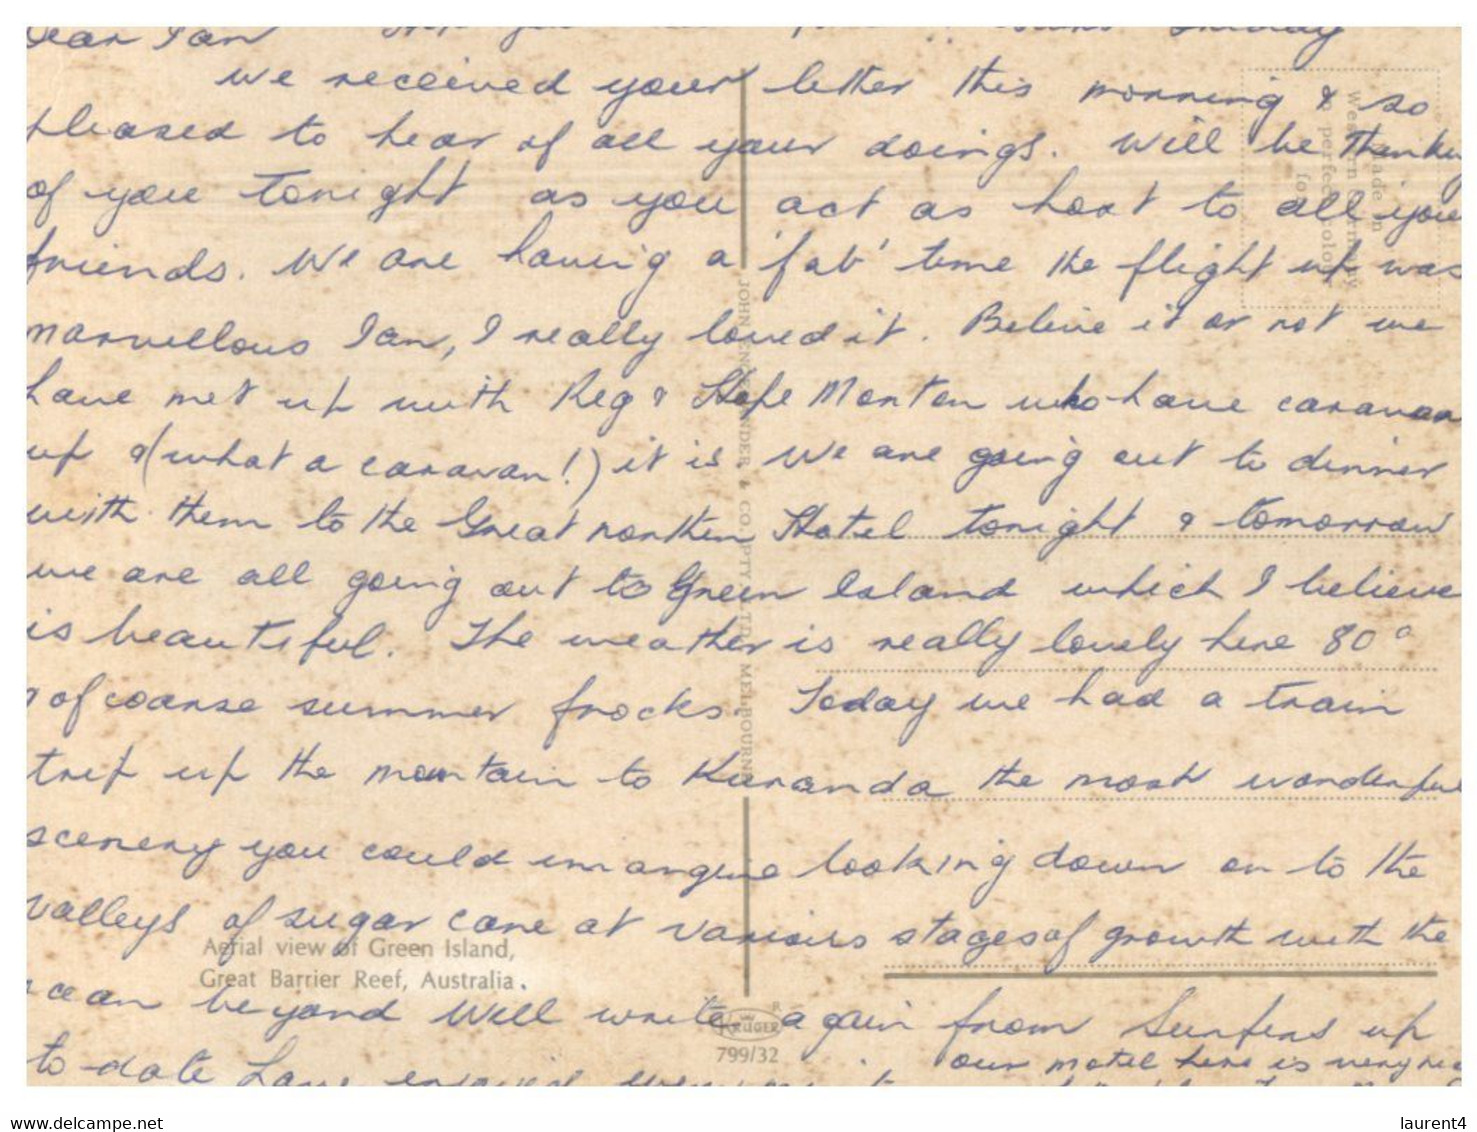 Dear Ian Hope you
we received your letter this morning & so
pleased to hear of all your doings. Will be thinking
of you tonight as you act as host to all your
friends. We are having a 'fab' time the flight up was
marvellous Ian, I really loved it. Believe it or not we
have met up with Reg & Hope Monton who have caravan
up & (what a caravan!) it is. We are going out to dinner
with them to the Great northern Hotel tonight & tomorrow
we are all going out to Green Island which I believe
is beautiful. The weather is really lovely here 80°
& of coarse summer frocks. Today we had a train
trip up the mountain to Kuranda the most wonderful
scenery you could imangine looking down on to the
valleys of sugar cane at various stages of growth with the
ocean beyond Will write again from Surfers up
to date have enjoyed our motel here is very
Aerial view of Green Island,
Great Barrier Reef, Australia.
KRUGER R
799/32
JOHN SANDER & CO. PTY. LTD. MELBOURNE
Made in
Western Germany
perfect colour
for
www.delcampe.net
laurent4